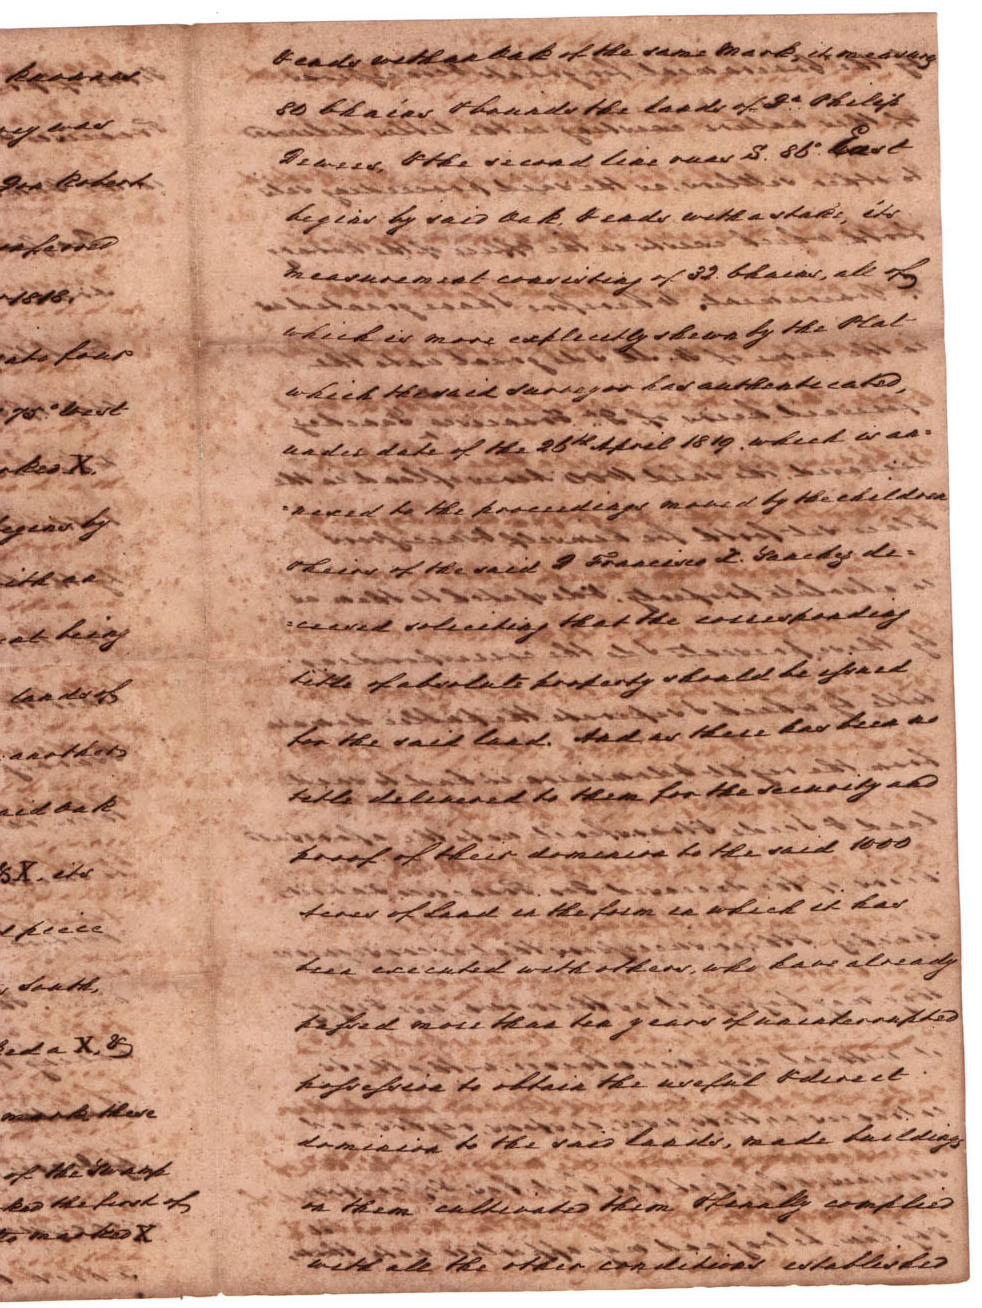 knowns
vey was
Don Robert
nsferred
1818.
into four
75° West
rked X.
begins by
with an
eat being
lands of
another
said Oak
X. its
piece
, South,
ked a X, &
mark, these
of the Swamp
ked the first of
marked X
& ends with an Oak of the same Mark, it measure
80 Chains & bounds the lands of Da. Philip
Dewees, & the second line runs S. 85° East
begins by said Oak, & ends with a stake, its
measurement consisting of 32 Chains, all of
which is more explicitly shewn by the Plat
which the said surveyor has authenticated,
under date of the 26th April 1819. which is an=
=nexed to the proceedings moved by the children
& heirs of the said D Francisco X. Sanchez de=
=ceased soliciting that the corresponding
title of absolute property should be issued
for the said land. And as there has been no
title delivered to them for the security and
proof of their dominion to the said 1000
Acres of Land in the form in which it has
been executed with others, who have already
passed more than ten years of uninterrupted
possession to obtain the useful & direct
dominion to the said Lands, made buildings
on them cultivated them & finally complied
with all the other conditions established